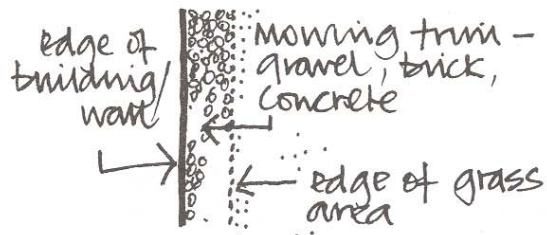 edge of
building/
wall
Mowing trim -
gravel, brick,
concrete
edge of grass
area